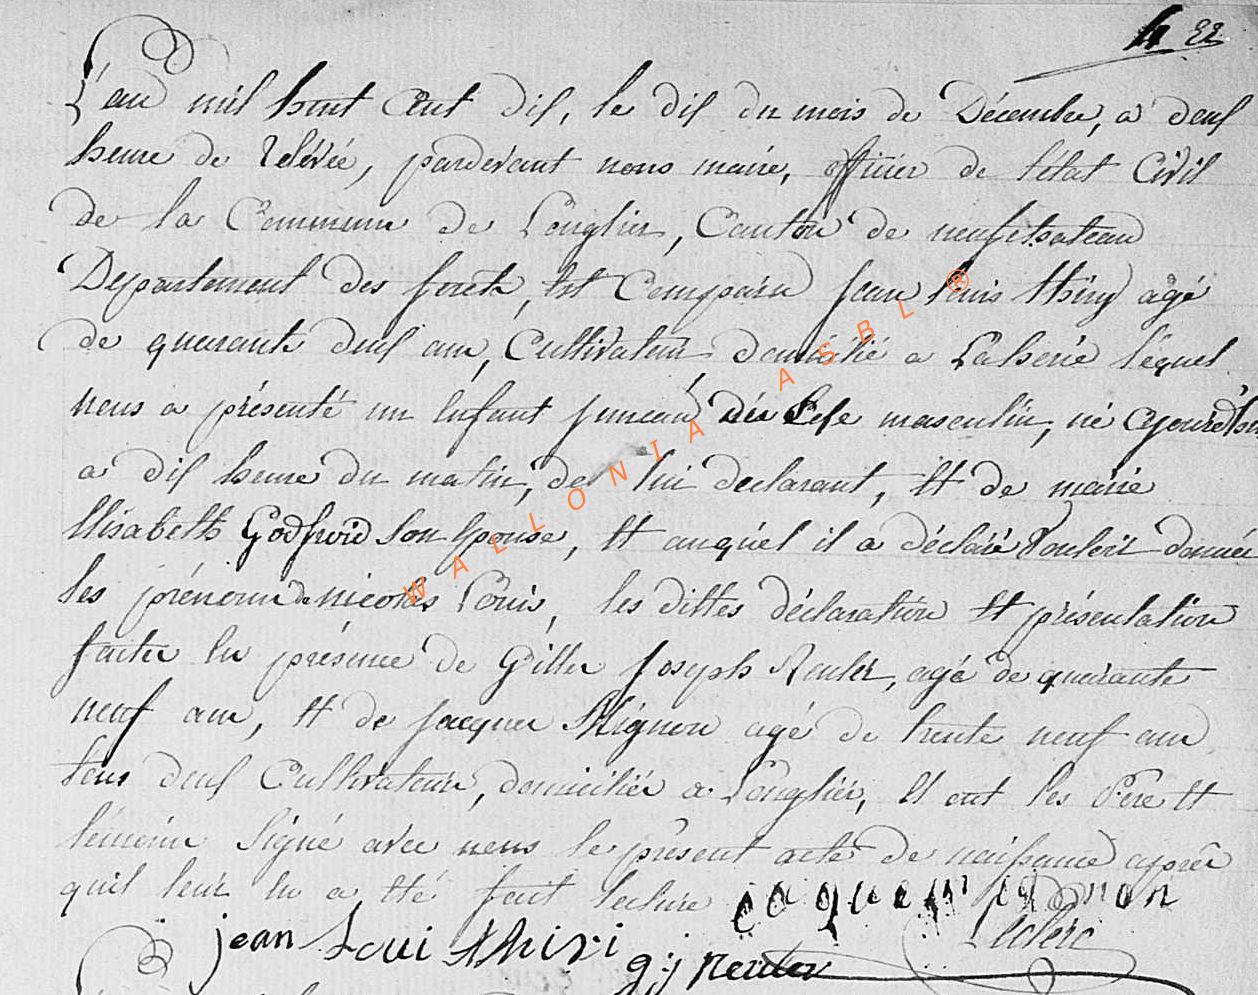 22
L'an mil huit Cent dix, le dix du mois de Décembre, a deux
heure de Relévée, pardevant nous maire, officier de l'état Civil
de la Commune de Longlier, Canton de neufchateau
Departement des forêts, Est Comparu jean louis thiry agé
de quarante deux ans, Cultivateur domicilié a Laherie léquel
nous a présenté un Enfant jumeau du Sexe masculin, né Cejourd'hui
a dix heure du matin, de lui declarant, Et de marie
Elisabeth Godfroid Son Epouse, Et auquél il a déclaré Vouloir donner
les prénoms de nicolas Louis, les dittes déclaration Et présentation
faites En présence de Gilles joseph Reuter, agé de quarante
neuf ans, Et de jacques Mignon agé de trente neuf ans
tous deux Cultivateurs, domiciliés a Longlier, Et ont les Père Et
témoins Signé avec nous le présent acte de naissance après
quil leur En a Eté fait lecture
jean Loui thiri
g: j reuter
Leclerc
WALLONIA ASBL ®